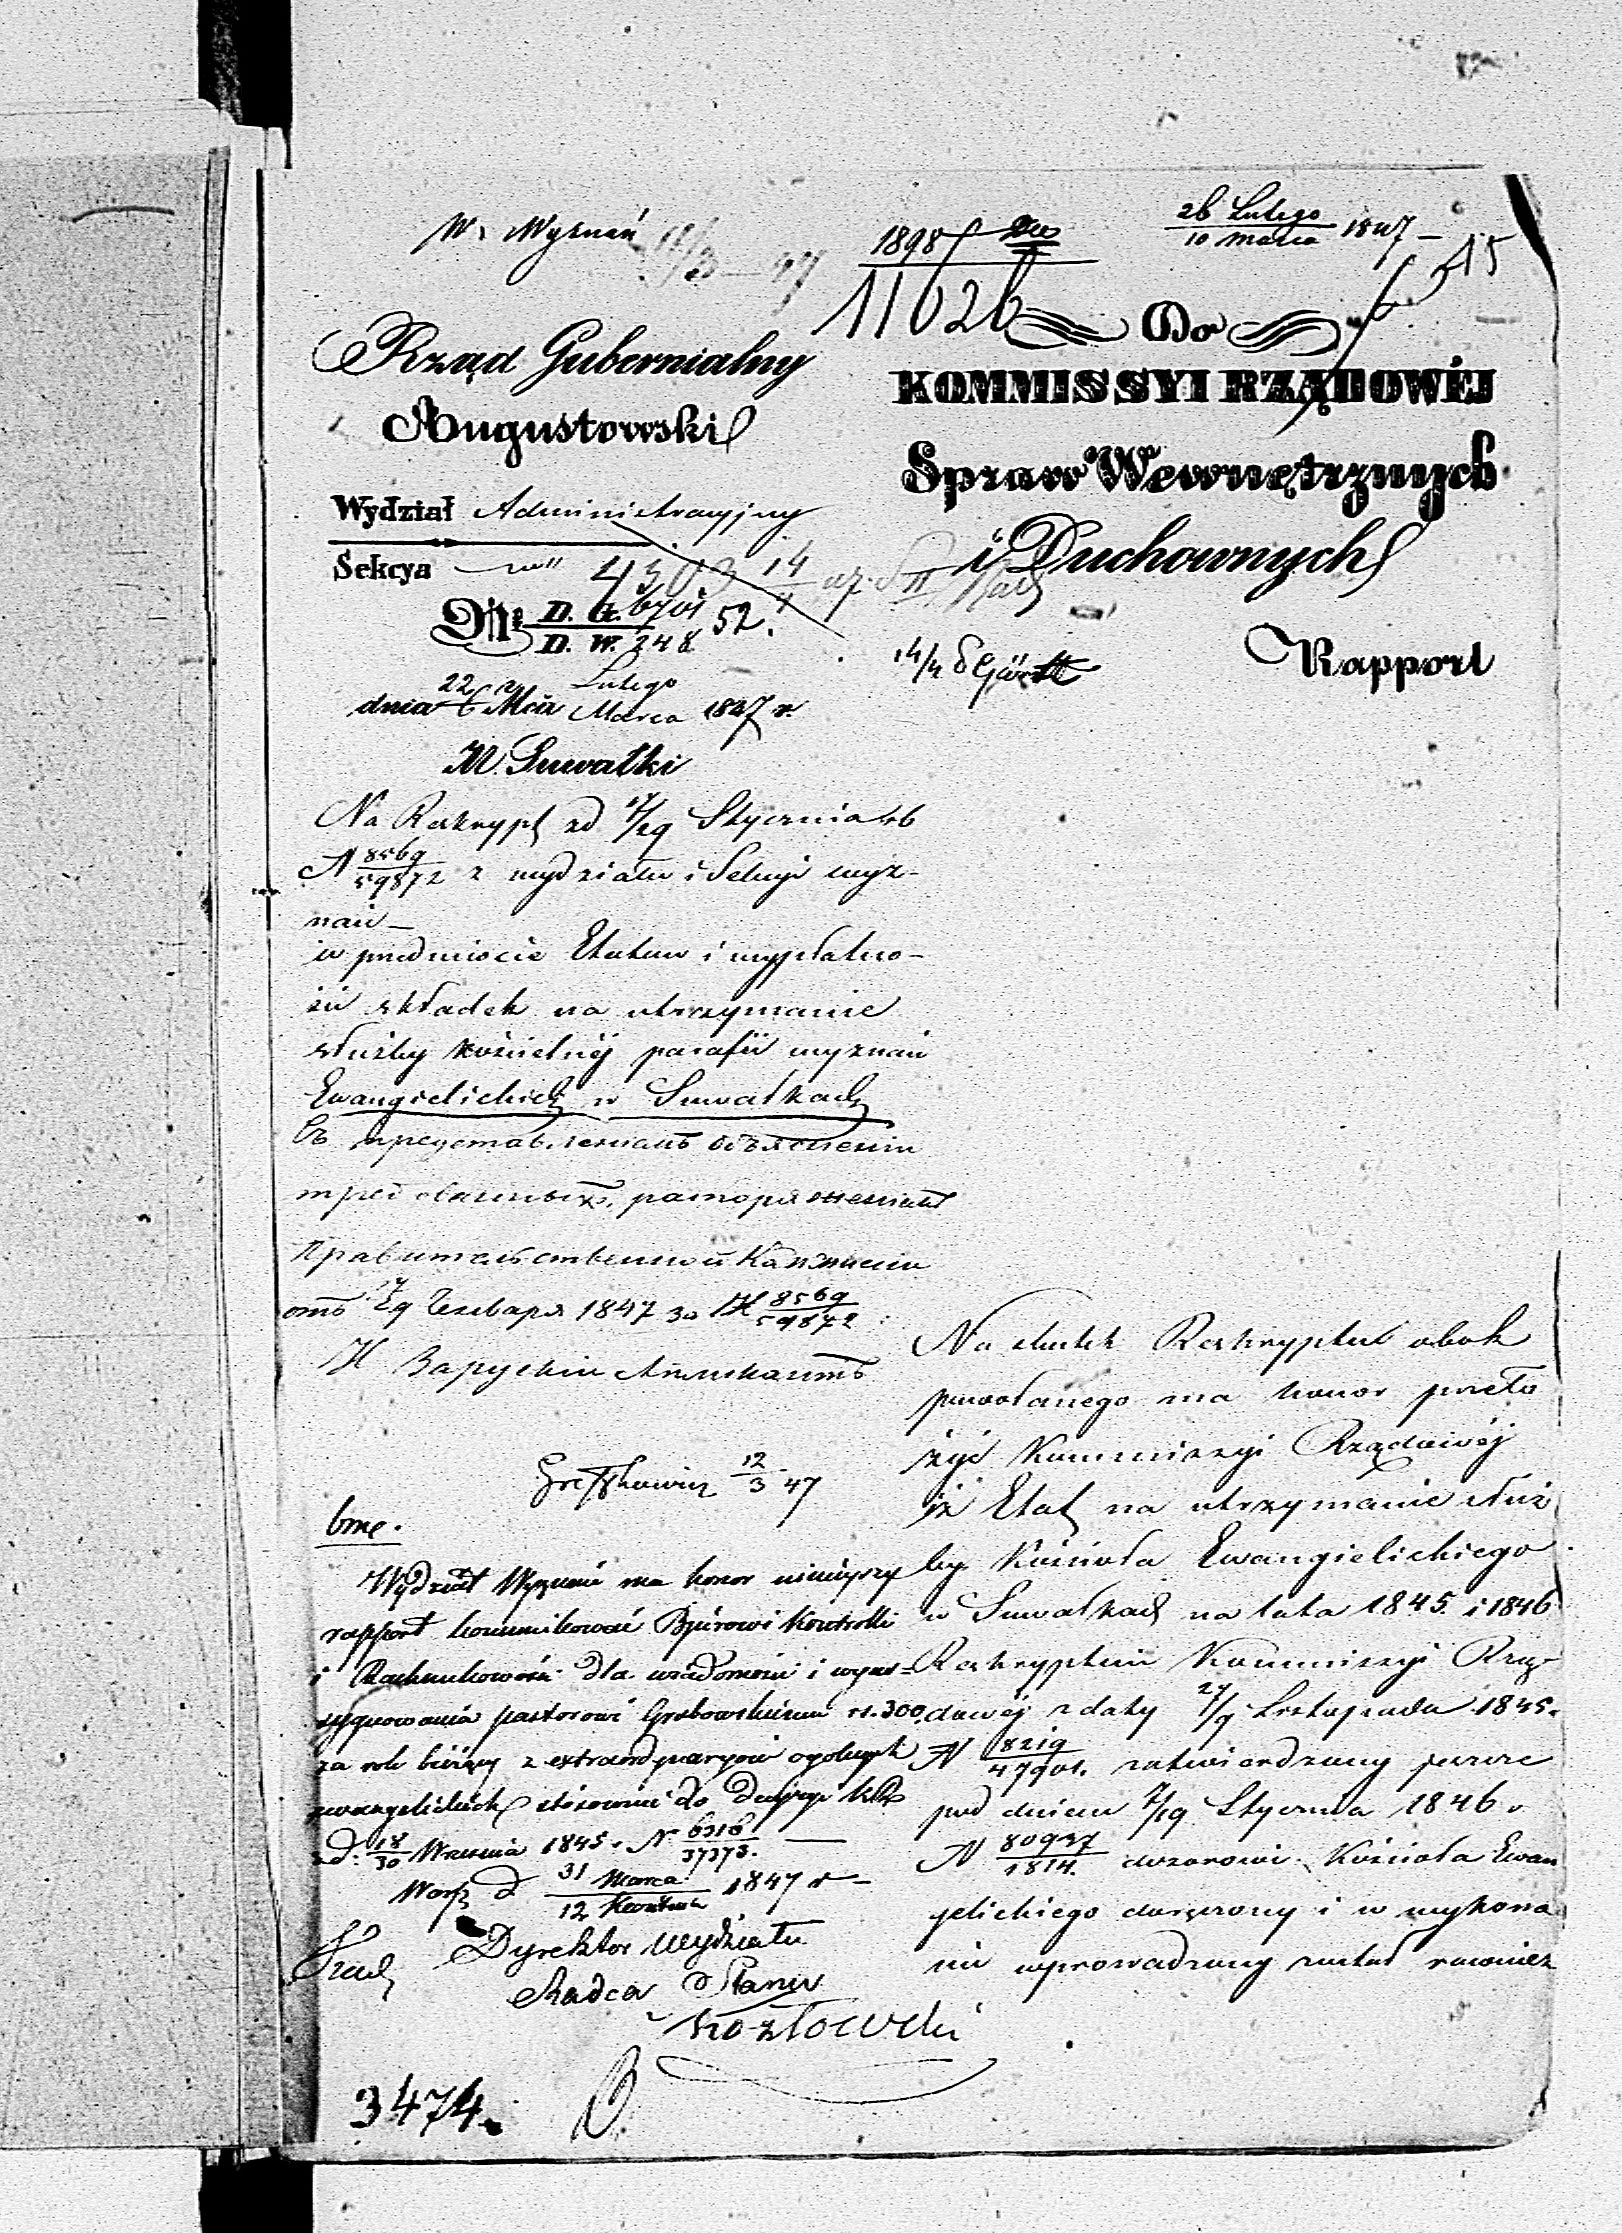 W. Wyznań
1898
26 Lutego
10 Marca 1847
11626
15
Do
Rząd Gubernialny
Augustowski
KOMMISSYI RZĄDOWÉJ
Spraw Wewnętrznych
i Duchownych
Rapport
Wydział Administracyjny
Sekcya
4503 14
Nr D. G. 6701
D. W. 248 52.
14/4
dnia 22 Lutego
6 Mca Marca 1847 r.
M. Suwałki
Na Reskrypt z d 17/29 Stycznia rb
N 8569
59872 z wydziału i Sekcyi wyz-
nań
w przedmiocie Etatow i wypłatno-
ści składek na utrzymanie
służby kościelnéj parafii wyznań
Ewangielickich w Suwałkach
Съ представленіемъ объясненія
распоряженіемъ
Правительственной Коммисіи
отъ 17/29 Генваря 1847 за N 8569
59872
12
3 47
bme.
Wydział Wyznań ma honor niniejszy
rapport kommunikować Bjórowi Kontrolli
i Rachunkowości dla wiadomości i wyas-
sygnowania pastorowi Grabowskiemu rs. 300
za rok bieżący z extraordynaryów ogolnych
ewangelickich stósownie do Decyzyi
z d. 18
30 Września 1845. N. 6316
37373.
Wars d 31 Marca
12 Kwietnia 1847 r
Dyrektor Wydziału
Radca Stanu
Kozłowski
3474.
Na skutek Reskryptu obok
powołanego ma honor przeło
żyć Kommissyi Rządowéj
iż Etat na utrzymanie służ
by Kościoła Ewangielickiego
w Suwałkach na lata 1845. i 1846
Reskryptem Kommissyi Rzą-
dowéj z daty 27/9 Listopada 1845.
N 8219
47901. zatwierdzony przeze
pod dniem 7/19 Stycznia 1846 r
N 80937
1814. dozorowi Kościoła Ewan
gelickiego doręczony i w wykona
nie wprowadzony został rownież